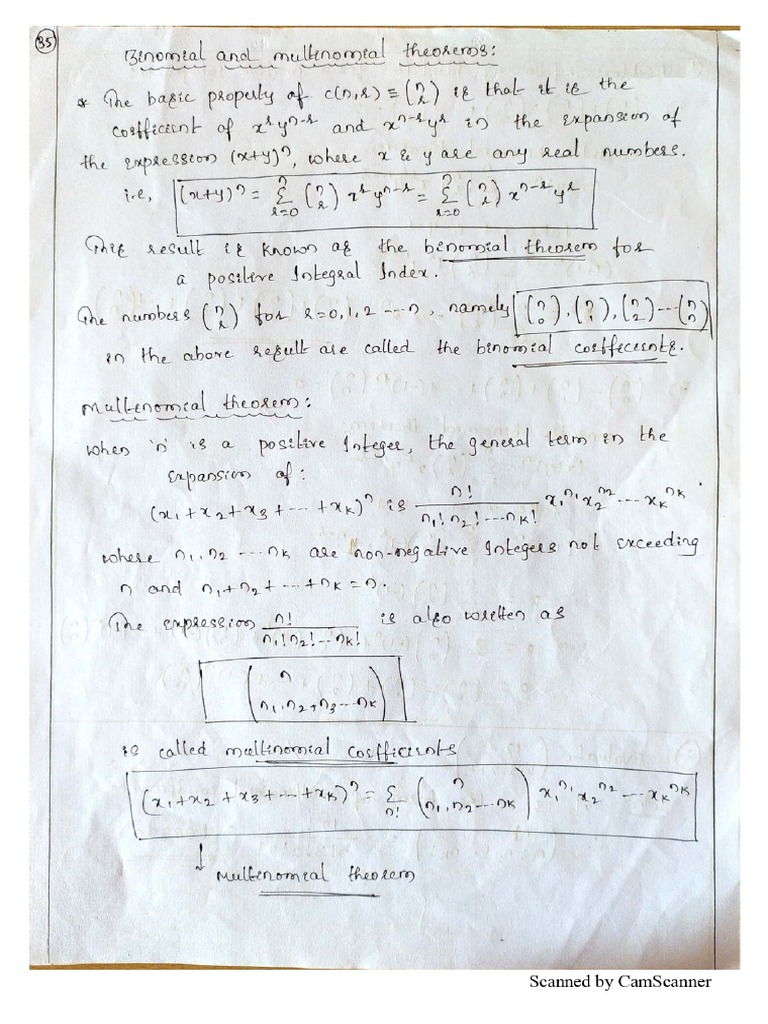 35
Binomial and multinomial theorems:
* The basic property of C(n,r) ≡ (n r) is that it is the
coefficient of x^r y^n-r and x^n-r y^r in the expansion of
the expression (x+y)^n, where x & y are any real numbers.
i.e, (x+y)^n = Σ r=0 n (n r) x^r y^n-r = Σ r=0 n (n r) x^n-r y^r
This result is known as the binomial theorem for
a positive Integral Index.
The numbers (n r) for r=0,1,2 ---n, namely (n 0), (n 1), (n 2)---(n n)
in the above result are called the binomial coefficients.
Multinomial theorem:
when 'n' is a positive Integer, the general term in the
expansion of:
(x1+x2+x3+---+xk)^n is n!/n1!n2!---nk! x1^n1 x2^n2 --- xk^nk
where n1,n2 ---nk are non-negative Integers not exceeding
n and n1+n2+---+nk=n.
The expression n!/n1!n2!---nk! is also written as
(n n1,n2,n3---nk)
is called multinomial coefficients
(x1+x2+x3+---+xk)^n = Σ n! (n n1,n2---nk) x1^n1 x2^n2 --- xk^nk
↓ Multinomial theorem
Scanned by CamScanner